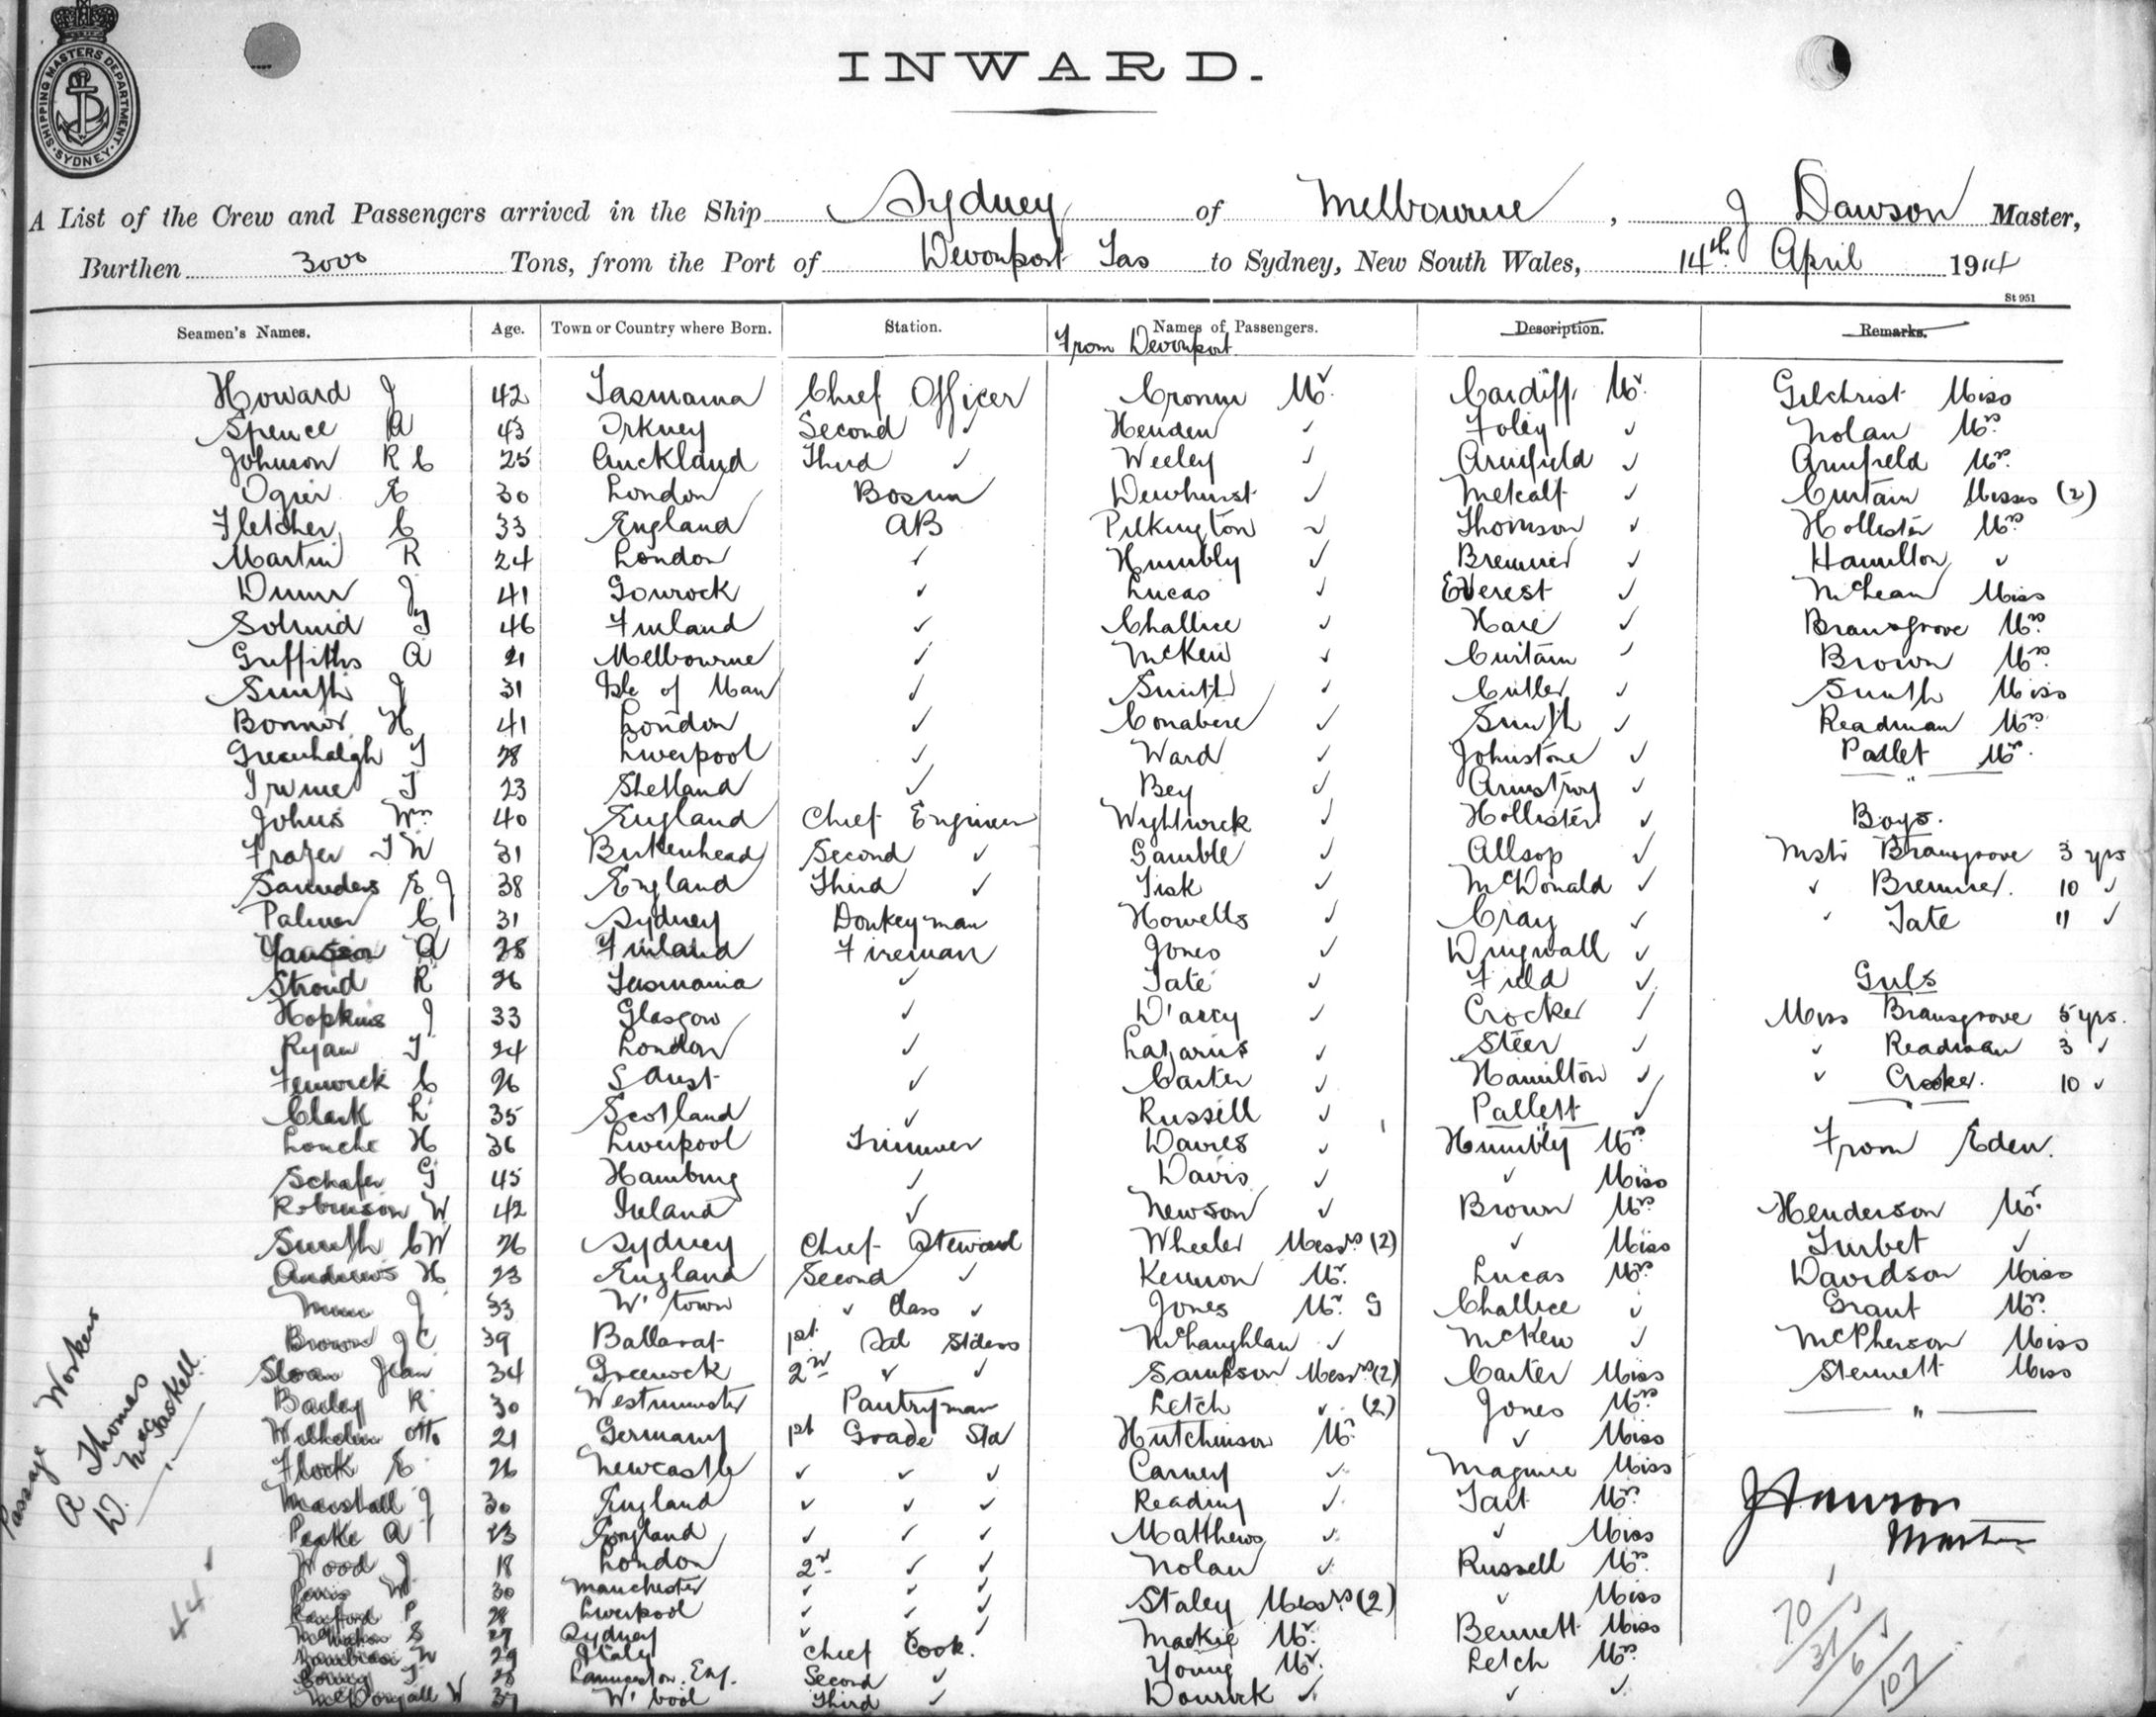 SHIPPING MASTERS DEPARTMENT · SYDNEY ·
INWARD.
A List of the Crew and Passengers arrived in the Ship Sydney of Melbourne, J Dawson Master,
Burthen 3000 Tons, from the Port of Devonport Tas to Sydney, New South Wales, 14th April 1914
St 951
Seamen's Names. Age. Town or Country where Born. Station. Names of Passengers. Description. Remarks.
From Devonport
Howard J 42 Tasmania Chief Officer Cronin Mr Cardiff Mr Gilchrist Miss
Spence A 43 Orkney Second ✓ Henden ✓ Foley ✓ Nolan Mrs
Johnson R C 25 Auckland Third ✓ Weeley ✓ Armfield ✓ Armfield Mrs
Ogier E 30 London Bosun Dewhurst ✓ Metcalf ✓ Curtain Misses (2)
Fletcher C 33 England AB Pilkington ✓ Thomson ✓ Hollister Mrs
Martin R 24 London ✓ Humbly ✓ Bremner ✓ Hamilton ✓
Dunn J 41 Gourock ✓ Lucas ✓ Everest ✓ McLean Miss
46 Finland ✓ Challice ✓ Hare ✓ Bransgrove Mrs
Griffiths A 21 Melbourne ✓ McKew ✓ Curtain ✓ Brown Mrs
Smith J 31 Isle of Man ✓ Smith ✓ Cutler ✓ Smith Miss
Bonnor H 41 London ✓ Conabere ✓ Smith ✓ Readman Mrs
Greenhalgh T 28 Liverpool ✓ Ward ✓ Johnstone ✓ Pallet Mrs
Irvine T 23 Shetland ✓ Bey ✓ Armstrong ✓
Johns Wm 40 England Chief Engineer Wightwick ✓ Hollister ✓ Boys.
Frazer T W 31 Birkenhead Second ✓ Gamble ✓ Allsop ✓ Mstr Bransgrove 3 yrs
Saunders E J 38 England Third ✓ Tisk ✓ McDonald ✓ ✓ Bremner. 10 ✓
Palmer C 31 Sydney Donkeyman Howells ✓ Cray ✓ ✓ Tate 11 ✓
A 28 Finland Fireman Jones ✓ Dingwall ✓
Stroud R 26 Tasmania ✓ Tate ✓ Field ✓ Girls
Hopkins J 33 Glasgow ✓ D'arcy ✓ Crocker ✓ Miss Bransgrove 5 yrs.
Ryan T 24 London ✓ Lazarus ✓ Steer ✓ ✓ Readman 3 ✓
Fenwick C 26 S Aust ✓ Carter ✓ Hamilton ✓ ✓ Crocker. 10 ✓
Clark L 35 Scotland ✓ Russell ✓ Pallett ✓
H 36 Liverpool Trimmer Davies ✓ Humbly Mrs From Eden.
Schafer G 45 Hamburg ✓ Davis ✓ ✓ Miss
Robinson W 42 Ireland ✓ Newson ✓ Brown Mrs Henderson Mr
Smith C W 26 Sydney Chief Steward Wheeler Messrs (2) ✓ Miss Turbet ✓
Andrews H 23 England Second ✓ Kennon Mr Lucas Mrs Davidson Miss
J 33 W' town ✓ Class ✓ Jones Mr G Challice ✓ Grant Mrs
Brown J C 39 Ballarat 1st Sal Stdess McLaughlan ✓ McKew ✓ McPherson Miss
Sloan Jean 34 Greenock 2nd ✓ ✓ Sampson Messrs (2) Carter Miss Stennett Miss
Bailey R 30 Westminster Pantryman Letch ✓ (2) Jones Mrs
Wilhelm Otto 21 Germany 1st Grade Std Hutchinson Mr ✓ Miss
Flock E 26 Newcastle ✓ ✓ ✓ Carney ✓ Maguire Miss
Marshall J 30 England ✓ ✓ ✓ Reading ✓ Tait Mrs
Peake A 23 England ✓ ✓ ✓ Matthews ✓ ✓ Miss
Wood J 18 London 2nd ✓ ✓ Nolan ✓ Russell Mrs
W 30 Manchester ✓ ✓ ✓ Staley Messrs (2) ✓ Miss
P 28 Liverpool ✓ ✓ ✓
S 27 Sydney ✓ ✓ ✓ Mackie Mr Bennett Miss
W 29 Italy Chief Cook. Young Mr Letch Mrs
T 28 Launceston. Eng. Second ✓
McDougall W 37 W' bool Third ✓ ✓ ✓ ✓
J Dawson
Master
Passage Workers
A Thomas
D. McGaskell.
44
70
31
6
107